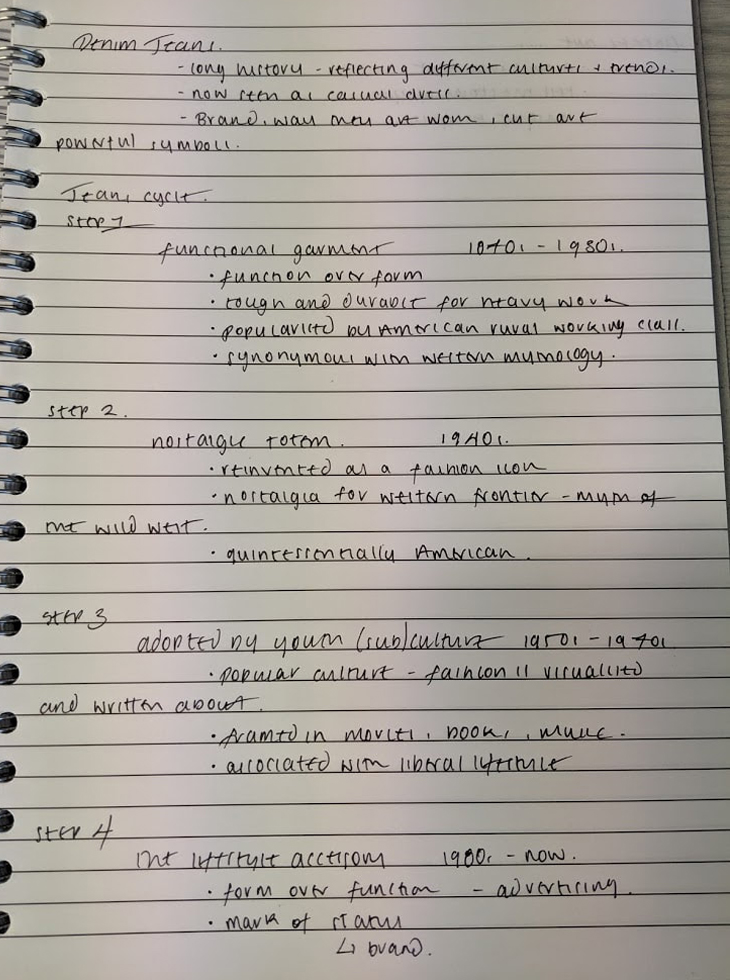 Denim Jeans.
- long history - reflecting different cultures + trends.
- now seen as casual dress.
- Brand, way they are worn, cut are
powerful symbols.
Jeans cycle.
Step 1
functional garment 1870s - 1930s.
• function over form
• tough and durable for heavy work
• popularised by American rural working class.
• synonymous with western mythology.
Step 2.
nostalgic totem. 1940s.
• reinvented as a fashion icon
• nostalgia for western frontier - myth of
the wild west.
• quintessentially American.
Step 3
adopted by youth (sub)culture 1950s - 1970s
• popular culture - fashion is visualised
and written about.
• framed in movies, books, music.
• associated with liberal lifestyle
Step 4
the lifestyle accessory 1980s - now.
• form over function - advertising.
• mark of status
↳ brand.